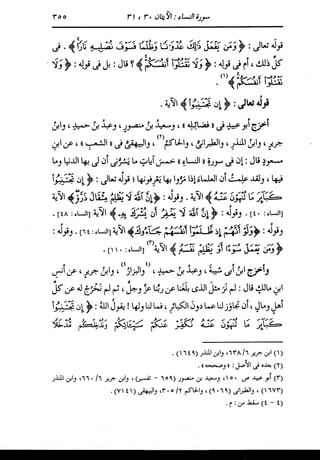 سورة النساء : الآيتان ٣٠ ، ٣١ ٣٥٥
قوله تعالى : ﴿ وَمَن يَفْعَلْ ذَٰلِكَ عُدْوَانًا وَظُلْمًا فَسَوْفَ نُصْلِيهِ نَارًا ﴾ . في
كل ذلك ، أم في قوله : ﴿ وَلَا تَقْتُلُوا أَنفُسَكُمْ ﴾ ؟ قال : بل في قوله : ﴿ وَلَا
تَقْتُلُوا أَنفُسَكُمْ ﴾(١) .
قوله تعالى : ﴿ إِن تَجْتَنِبُوا ﴾ الآية .
أخرج أبو عبيد في « فضائله » ، وسعيد بن منصور ، وعبد بن حميد ، وابن
جرير ، وابن المنذر ، والطبراني ، والحاكم(٢) ، والبيهقي في « الشعب » ، عن ابن
مسعود قال : إن في سورة « النساء » خمس آيات ما يسرني أن لي بها الدنيا وما
فيها ، ولقد علمت أن العلماء إذا مروا بها يعرفونها ؛ قوله تعالى : ﴿ إِن تَجْتَنِبُوا
كَبَائِرَ مَا تُنْهَوْنَ عَنْهُ ﴾ الآية . وقوله : ﴿ إِنَّ اللَّهَ لَا يَظْلِمُ مِثْقَالَ ذَرَّةٍ ﴾ الآية
[النساء : ٤٠] . وقوله : ﴿ إِنَّ اللَّهَ لَا يَغْفِرُ أَن يُشْرَكَ بِهِ ﴾ الآية [النساء : ٤٨] .
وقوله : ﴿ وَلَوْ أَنَّهُمْ إِذ ظَّلَمُوا أَنفُسَهُمْ جَاءُوكَ ﴾ الآية [النساء : ٦٤] . وقوله :
﴿ وَمَن يَعْمَلْ سُوءًا أَوْ يَظْلِمْ نَفْسَهُ ﴾ الآية(٣) [النساء : ١١٠] .
وأخرج ابن أبي شيبة ، وعبد بن حميد ، (٤)والبزار(٤) ، وابن جرير ، عن أنس
ابن مالك قال : لم نر مثل الذي بلغنا عن ربنا عز وجل ، ثم لم نخرج له عن كل
أهل ومال ، أن تجاوز لنا عما دون الكبائر ، فما لنا ولها ! يقول الله : ﴿ إِن تَجْتَنِبُوا
كَبَائِرَ مَا تُنْهَوْنَ عَنْهُ نُكَفِّرْ عَنكُمْ سَيِّئَاتِكُمْ وَنُدْخِلْكُم مُّدْخَلًا
(١) ابن جرير ٦/ ٦٣٨، وابن المنذر (١٦٤٩) .
(٢) بعده في الأصل : « وصححه » .
(٣) أبو عبيد ص ١٥٠، وسعيد بن منصور (٦٥٩ - تفسير) ، وابن جرير ٦/ ٦٦٠، وابن المنذر
(١٦٧٣) ، والطبراني (٩٠٦٩) ، والحاكم ٢/ ٣٠٥، والبيهقي (٧١٤١) .
(٤ - ٤) سقط من : م .